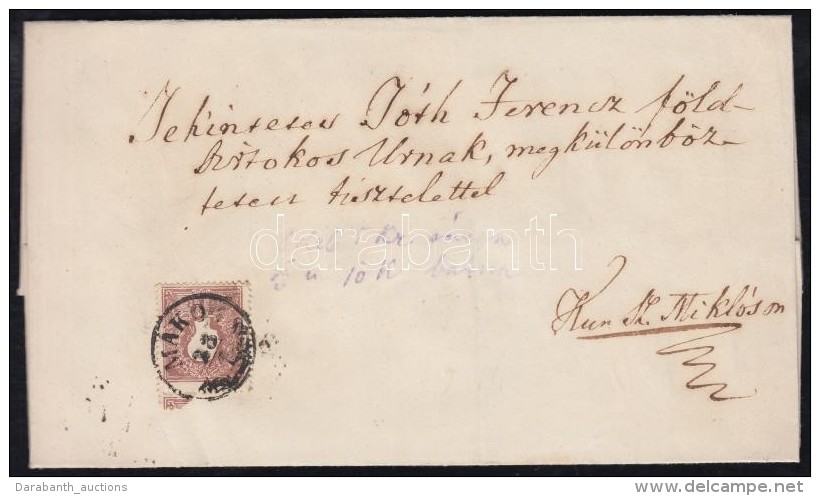 Tekintetes Tóth Ferencz föld-
birtokos Urnak, megkülönböz-
tesen tisztelettel
darabanth
10 K barna
Kun Sz. Miklóson
MAKÓ
23
Darabanth_auctions
www.delcampe.net